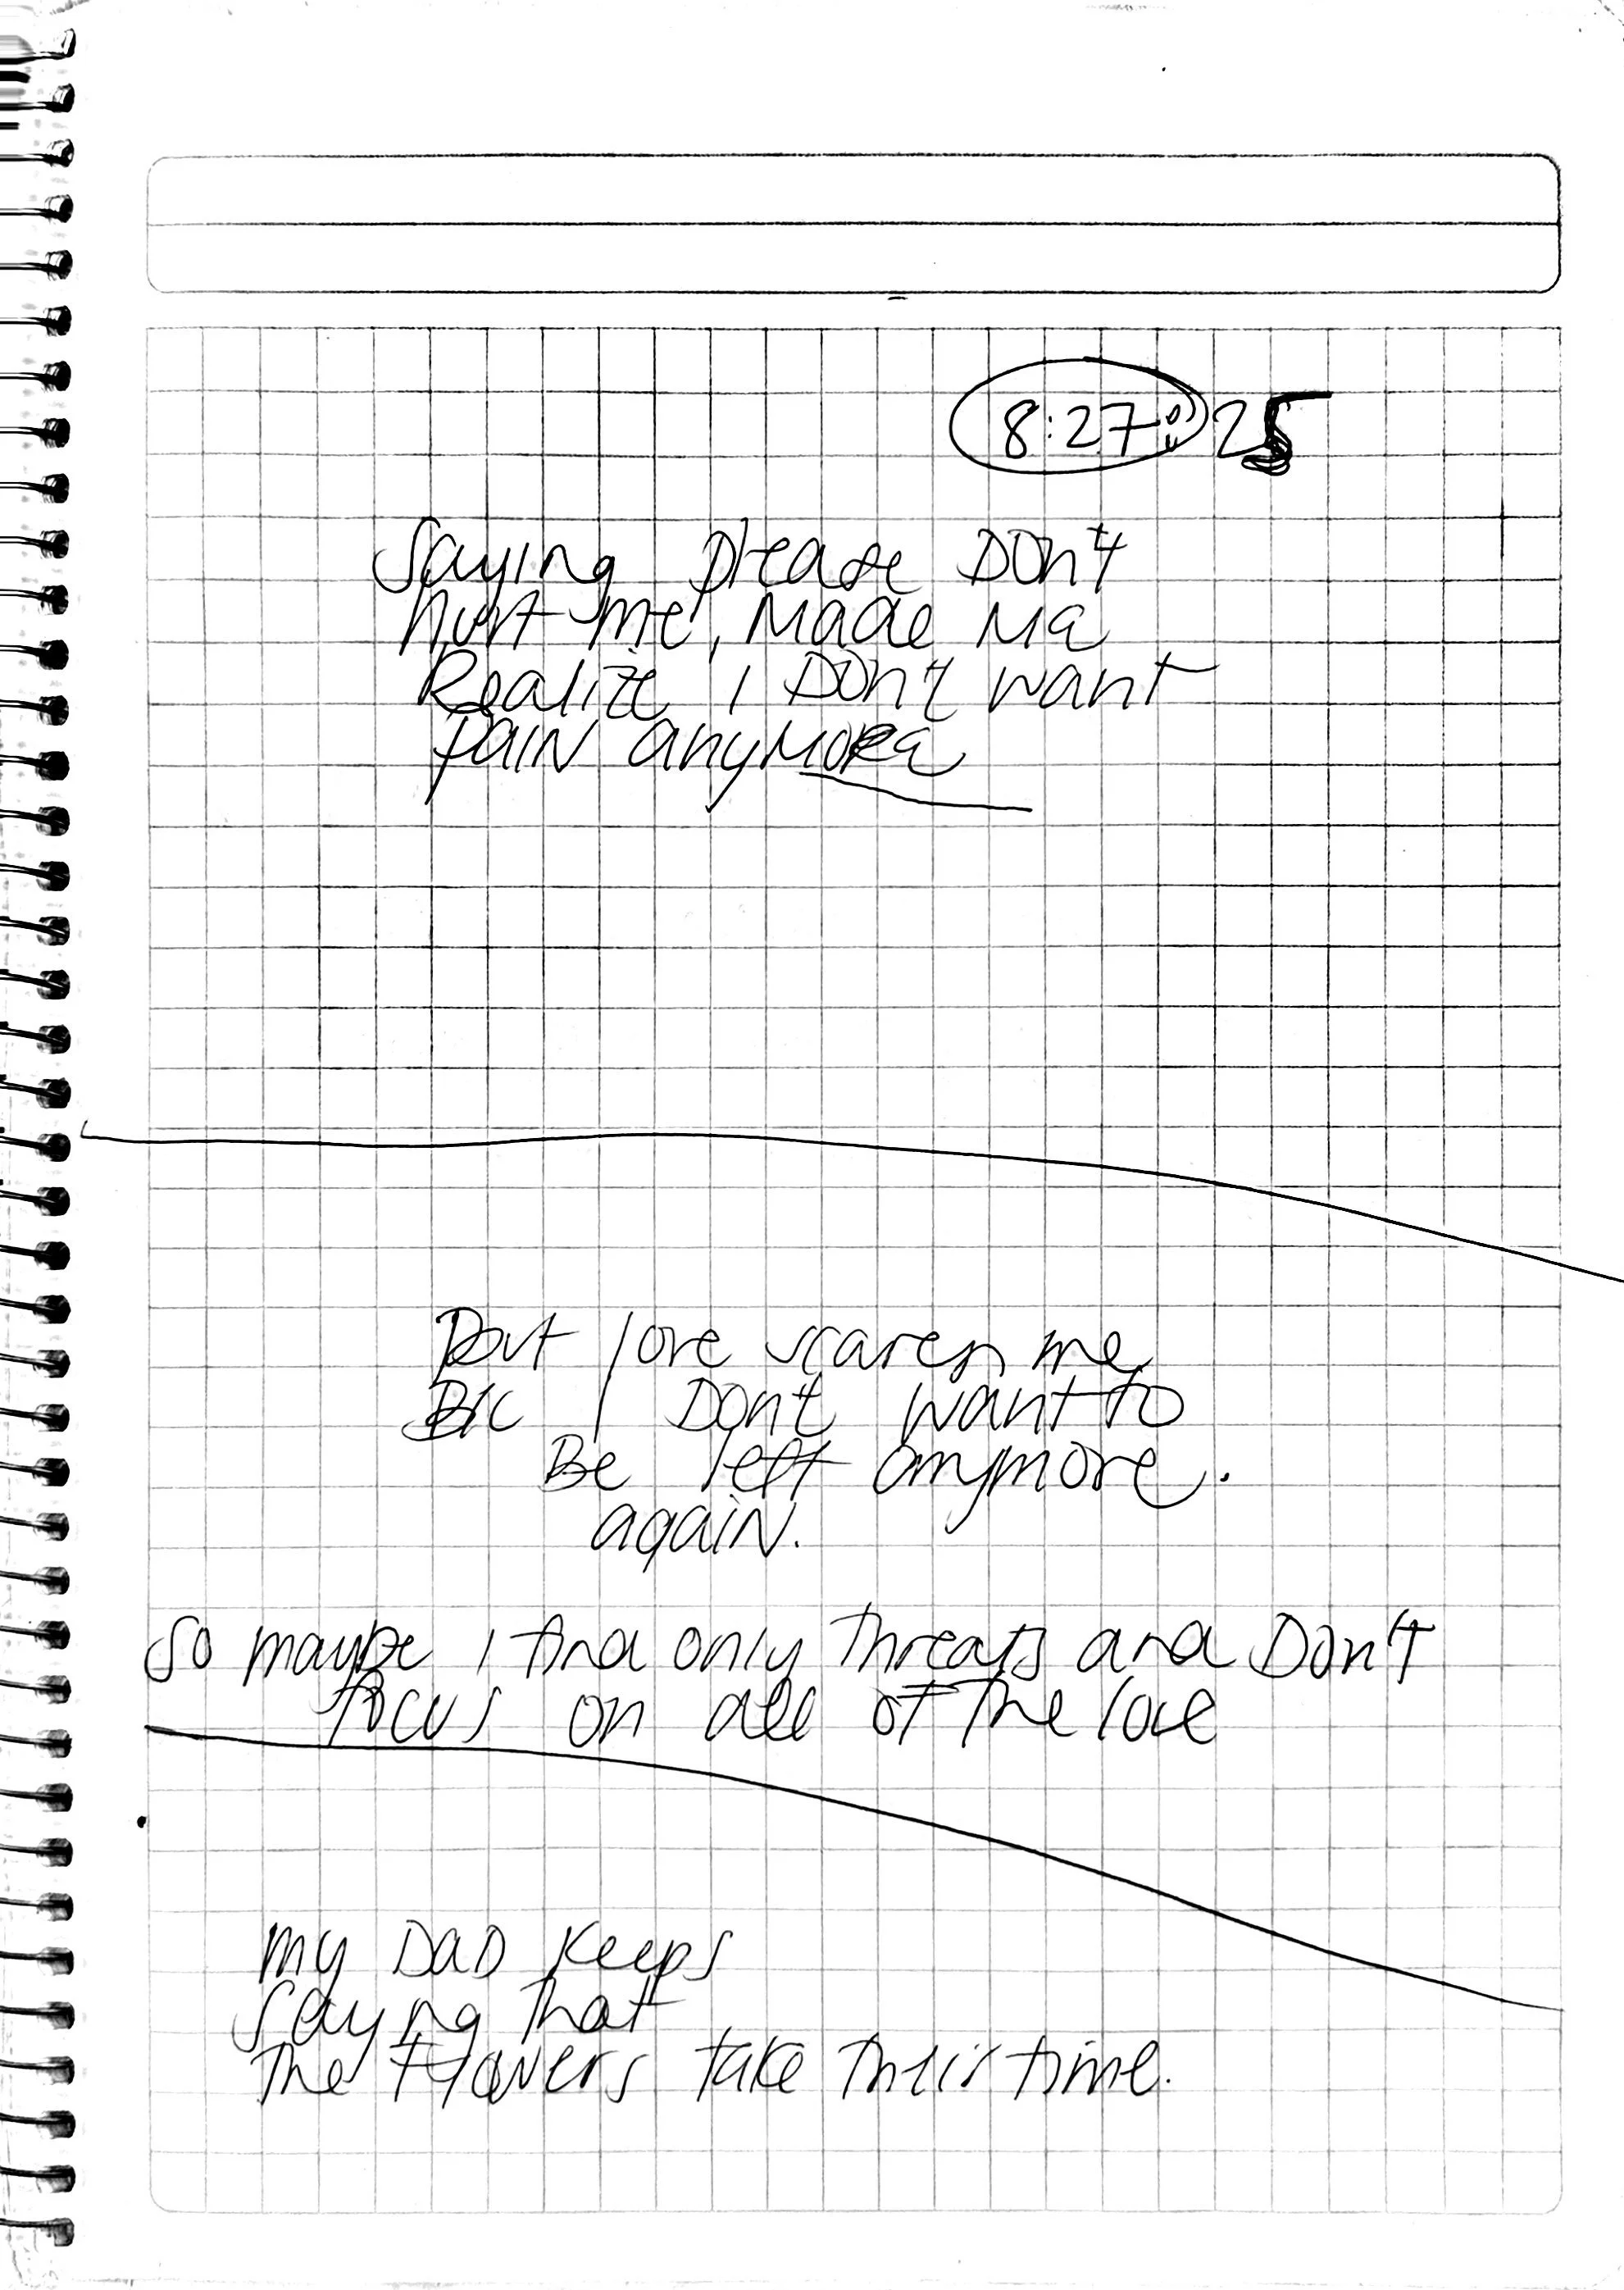 8:27:25
Saying please Don't
hurt me, Made Me
Realize I Don't want
pain anymore
But love scares me
B/c I Don't want to
Be left anymore.
again.
So maybe I find only threats and Don't
focus on all of the love
my DAD keeps
saying that
the flowers take their time.